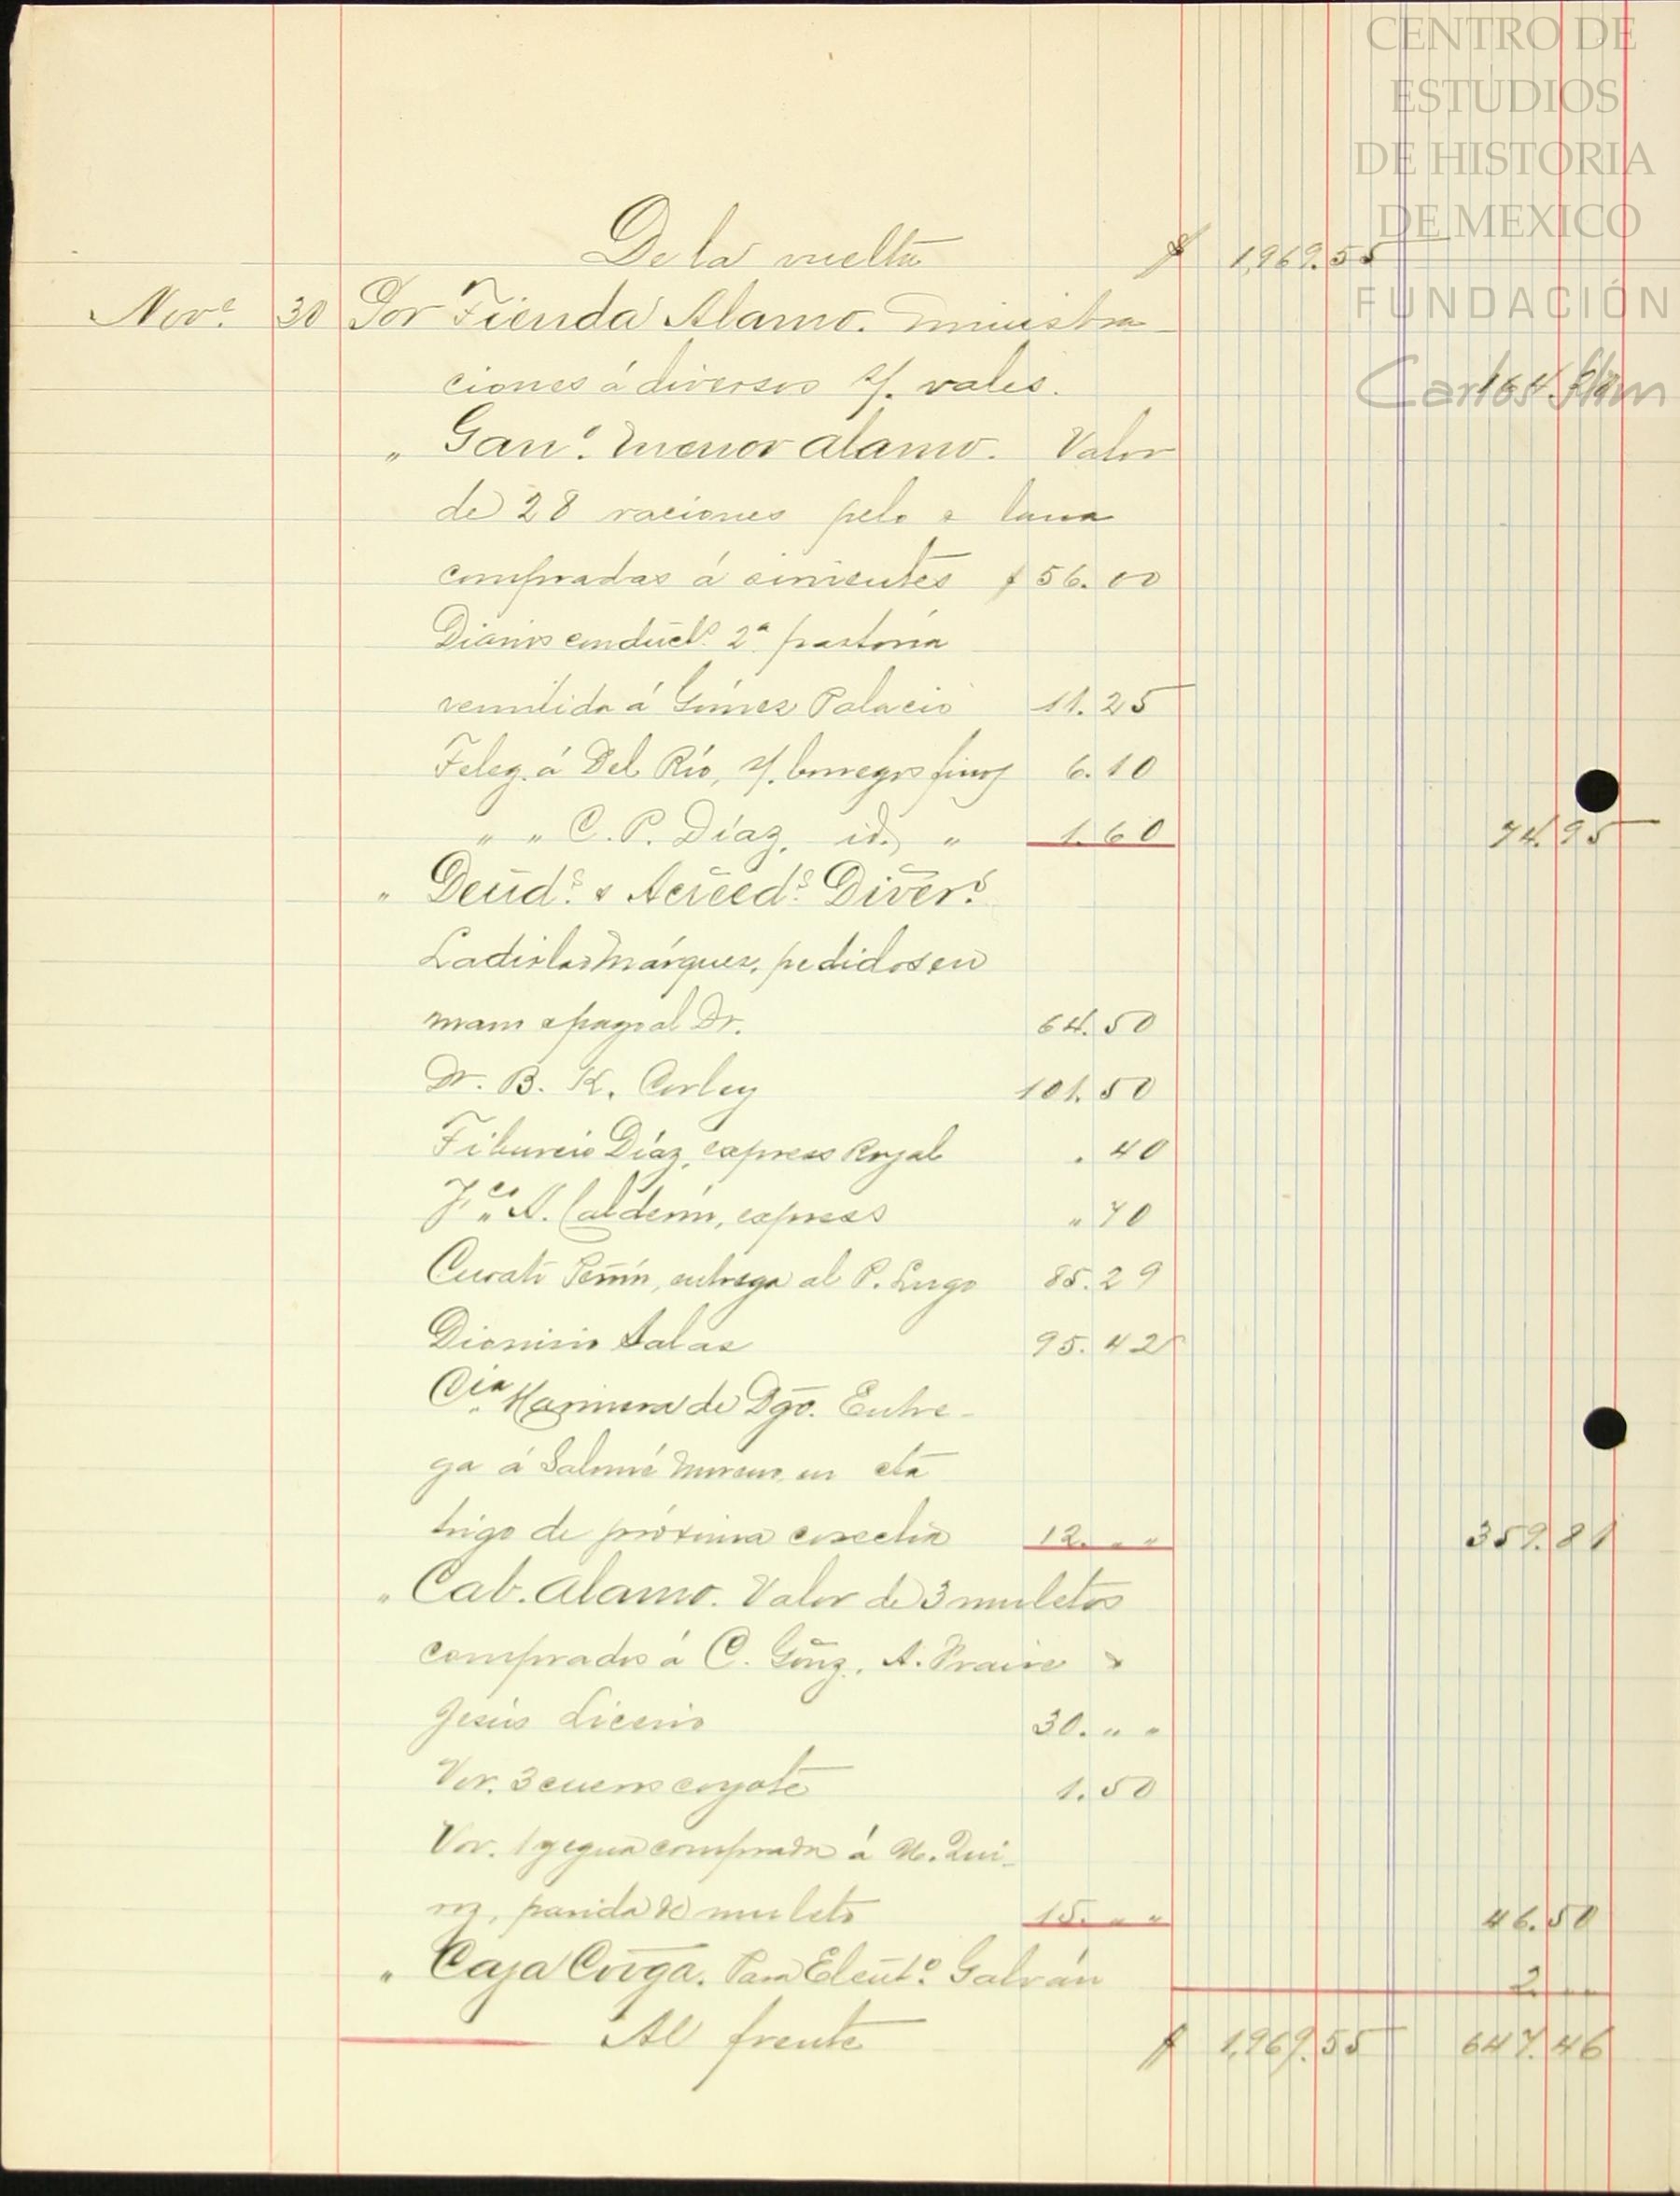 CENTRO DE
ESTUDIOS
DE HISTORIA
DE MEXICO
FUNDACIÓN
Carlos Slim
De la vuelta $ 1,969.55
Nove. 30 Por Tienda Alamo. Ministra-
ciones á diversos s/. vales. 164.20
" Gano. Menor Alamo. Valor
de 28 raciones pelo o lana
compradas á sirvientes $ 56.00
Diarios conduct. 2a. pastoría
remitida á Gómez Palacio 11.25
Teleg. á Del Río, s/. borregos finos 6.10
" " C. P. Díaz, id. " 1.60 74.95
" Deuds. & Acreeds. Divers.
Ladislao Márquez, pedidos en
mano & pago al Dr. 64.50
Dr. B. K. Corley 101.50
Tiburcio Díaz, express Royal . 40
Fco. A. Calderón, express " 70
Curato Peñón, entrega al P. Lugo 85.29
Dionisio Salas 95.42
Cia. Harinera de Dgo. Entre-
ga á Salomé Moreno, en cta
trigo de próxima cosecha 12. " " 359.81
" Cab. Alamo. Valor de 3 muletos
comprados á C. Gonz., A. Fraire &
Jesús Licerio 30. " "
Vor. 3 cueros coyote 1.50
Vor. 1 yegua comprada á M. Qui-
roz, parida de muleto 15. " " 46.50
" Caja Coyga. Para Eleuto. Galván 2. " "
Al frente $ 1,969.55 647.46